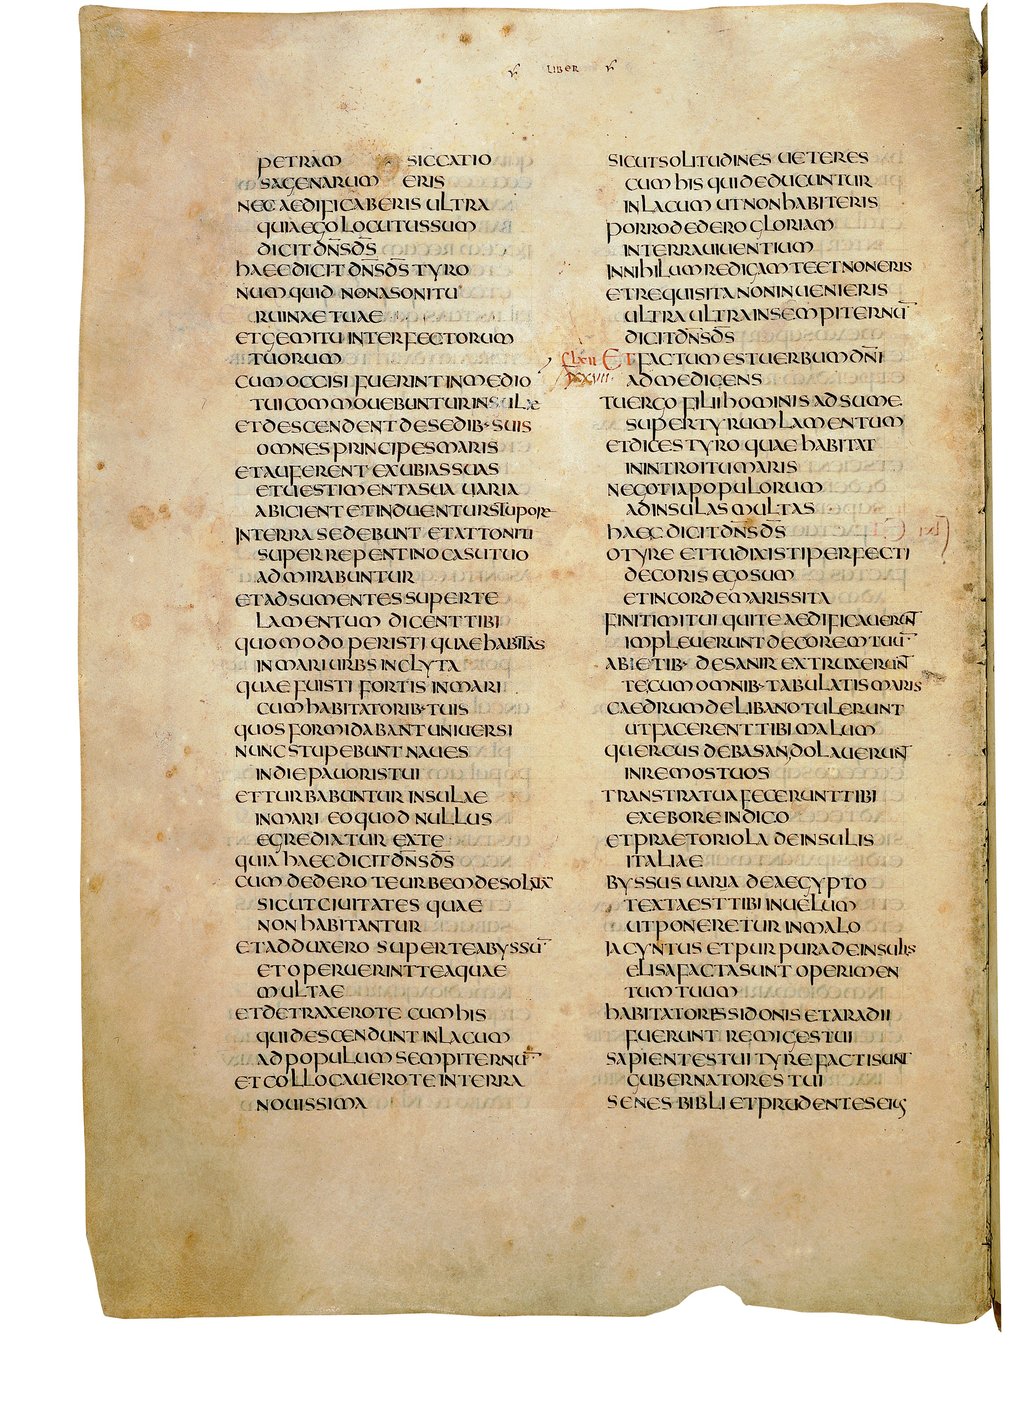 LIBER
PETRAM SICCATIO
SAGENARUM ERIS
NEC AEDIFICABERIS ULTRA
QUIA EGO LOCUTUS SUM
DICIT DN̄S D̄S
HAEC DICIT DN̄S D̄S TYRO
NUMQUID NON A SONITU
RUINAE TUAE
ET GEMITU INTERFECTORUM
TUORUM
CUM OCCISI FUERINT IN MEDIO
TUI COMMOUEBUNTUR INSULAE
ET DESCENDENT DE SEDIB· SUIS
OMNES PRINCIPES MARIS
ET AUFERENT EXUBIAS SUAS
ET UESTIMENTA SUA UARIA
ABICIENT ET INDUENTUR STUPORE
IN TERRA SEDEBUNT ET ATTONITI
SUPER REPENTINO CASU TUO
ADMIRABUNTUR
ET ADSUMENTES SUPER TE
LAMENTUM DICENT TIBI
QUOMODO PERISTI QUAE HABITAS
IN MARI URBS INCLYTA
QUAE FUISTI FORTIS IN MARI
CUM HABITATORIB· TUIS
QUOS FORMIDABANT UNIUERSI
NUNC STUPEBUNT NAUES
IN DIE PAUORIS TUI
ET TURBABUNTUR INSULAE
IN MARI EO QUOD NULLUS
EGREDIATUR EX TE
QUIA HAEC DICIT DN̄S D̄S
CUM DEDERO TE URBEM DESOLATĀ
SICUT CIUITATES QUAE
NON HABITANTUR
ET ADDUXERO SUPER TE ABYSSŪ
ET OPERUERINT TE AQUAE
MULTAE
ET DETRAXERO TE CUM HIS
QUI DESCENDUNT IN LACUM
AD POPULUM SEMPITERNŪ
ET COLLOCAUERO TE IN TERRA
NOUISSIMA
SICUT SOLITUDINES UETERES
CUM HIS QUI DEDUCUNTUR
IN LACUM UT NON HABITERIS
PORRO DEDERO GLORIAM
IN TERRA UIUENTIUM
IN NIHILUM REDIGAM TE ET NON ERIS
ET REQUISITA NON INUENIERIS
ULTRA ULTRA IN SEMPITERNŪ
DICIT DN̄S D̄S
ET FACTUM EST UERBUM DN̄I
AD ME DICENS
TU ERGO FILI HOMINIS ADSUME
SUPER TYRUM LAMENTUM
ET DICES TYRO QUAE HABITAT
IN INTROITU MARIS
NEGOTIA POPULORUM
AD INSULAS MULTAS
HAEC DICIT DN̄S D̄S
O TYRE ET TU DIXISTI PERFECTI
DECORIS EGO SUM
ET IN CORDE MARIS SITA
FINITIMI TUI QUI TE AEDIFICAUERUNT
IMPLEUERUNT DECOREM TUŪ
ABIETIB· DE SANIR EXTRUXERUNT
TE CUM OMNIB· TABULATIS MARIS
CAEDRUM DE LIBANO TULERUNT
UT FACERENT TIBI MALUM
QUERCUS DE BASAN DOLAUERUNT
IN REMOS TUOS
TRANSTRA TUA FECERUNT TIBI
EX EBORE INDICO
ET PRAETORIOLA DE INSULIS
ITALIAE
BYSSUS UARIA DE AEGYPTO
TEXTA EST TIBI IN UELUM
UT PONERETUR IN MALO
IACYNTUS ET PURPURA DE INSULIS
ELISA FACTA SUNT OPERIMEN
TUM TUUM
HABITATORES SIDONIS ET ARADII
FUERUNT REMIGES TUI
SAPIENTES TUI TYRE FACTI SUNT
GUBERNATORES TUI
SENES BIBLI ET PRUDENTES EIUS